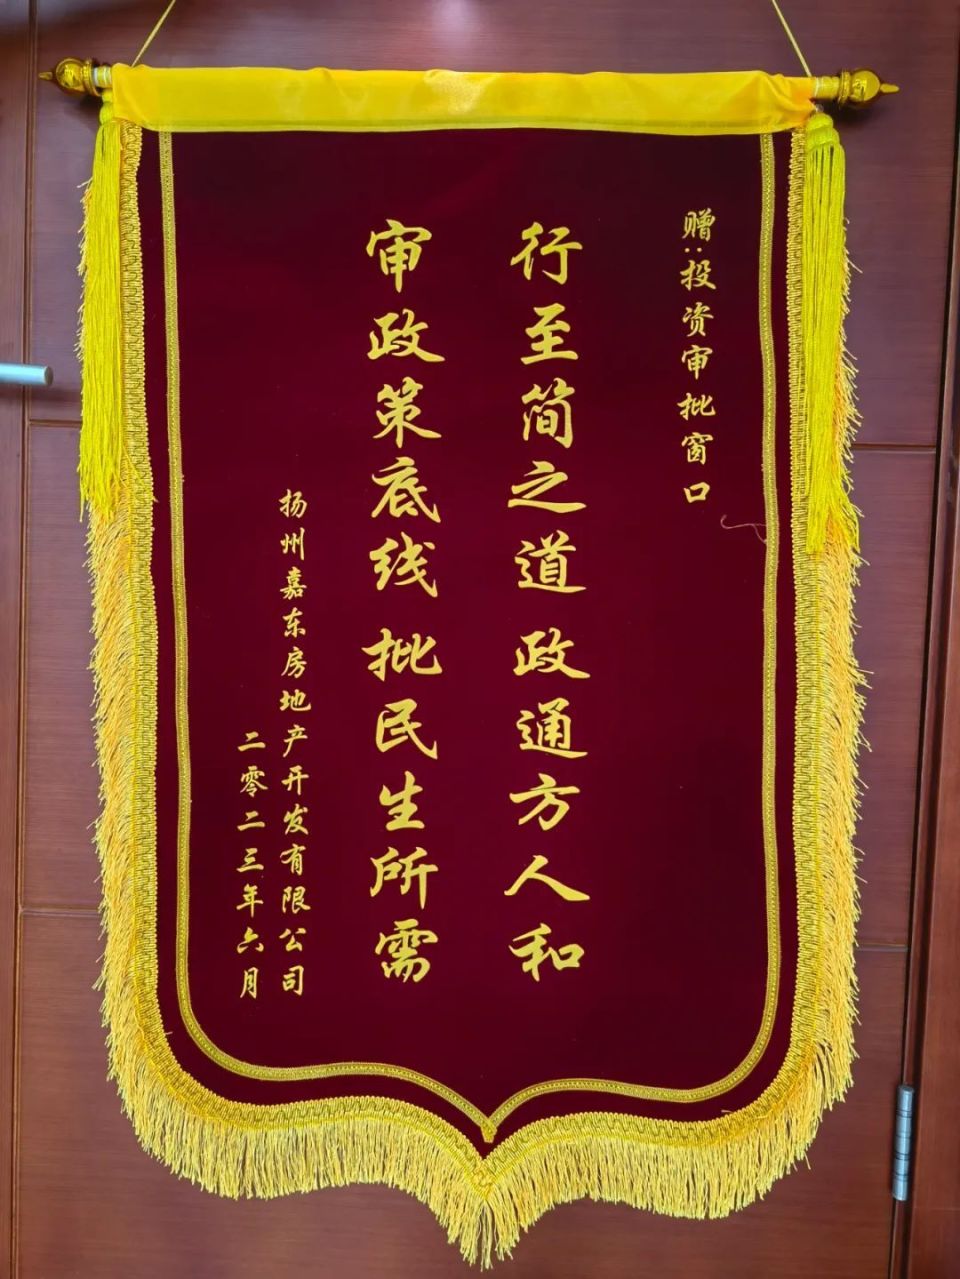 赠:投资审批窗口
行至简之道 政通方人和
审政策底线 批民生所需
扬州嘉东房地产开发有限公司
二零二三年六月